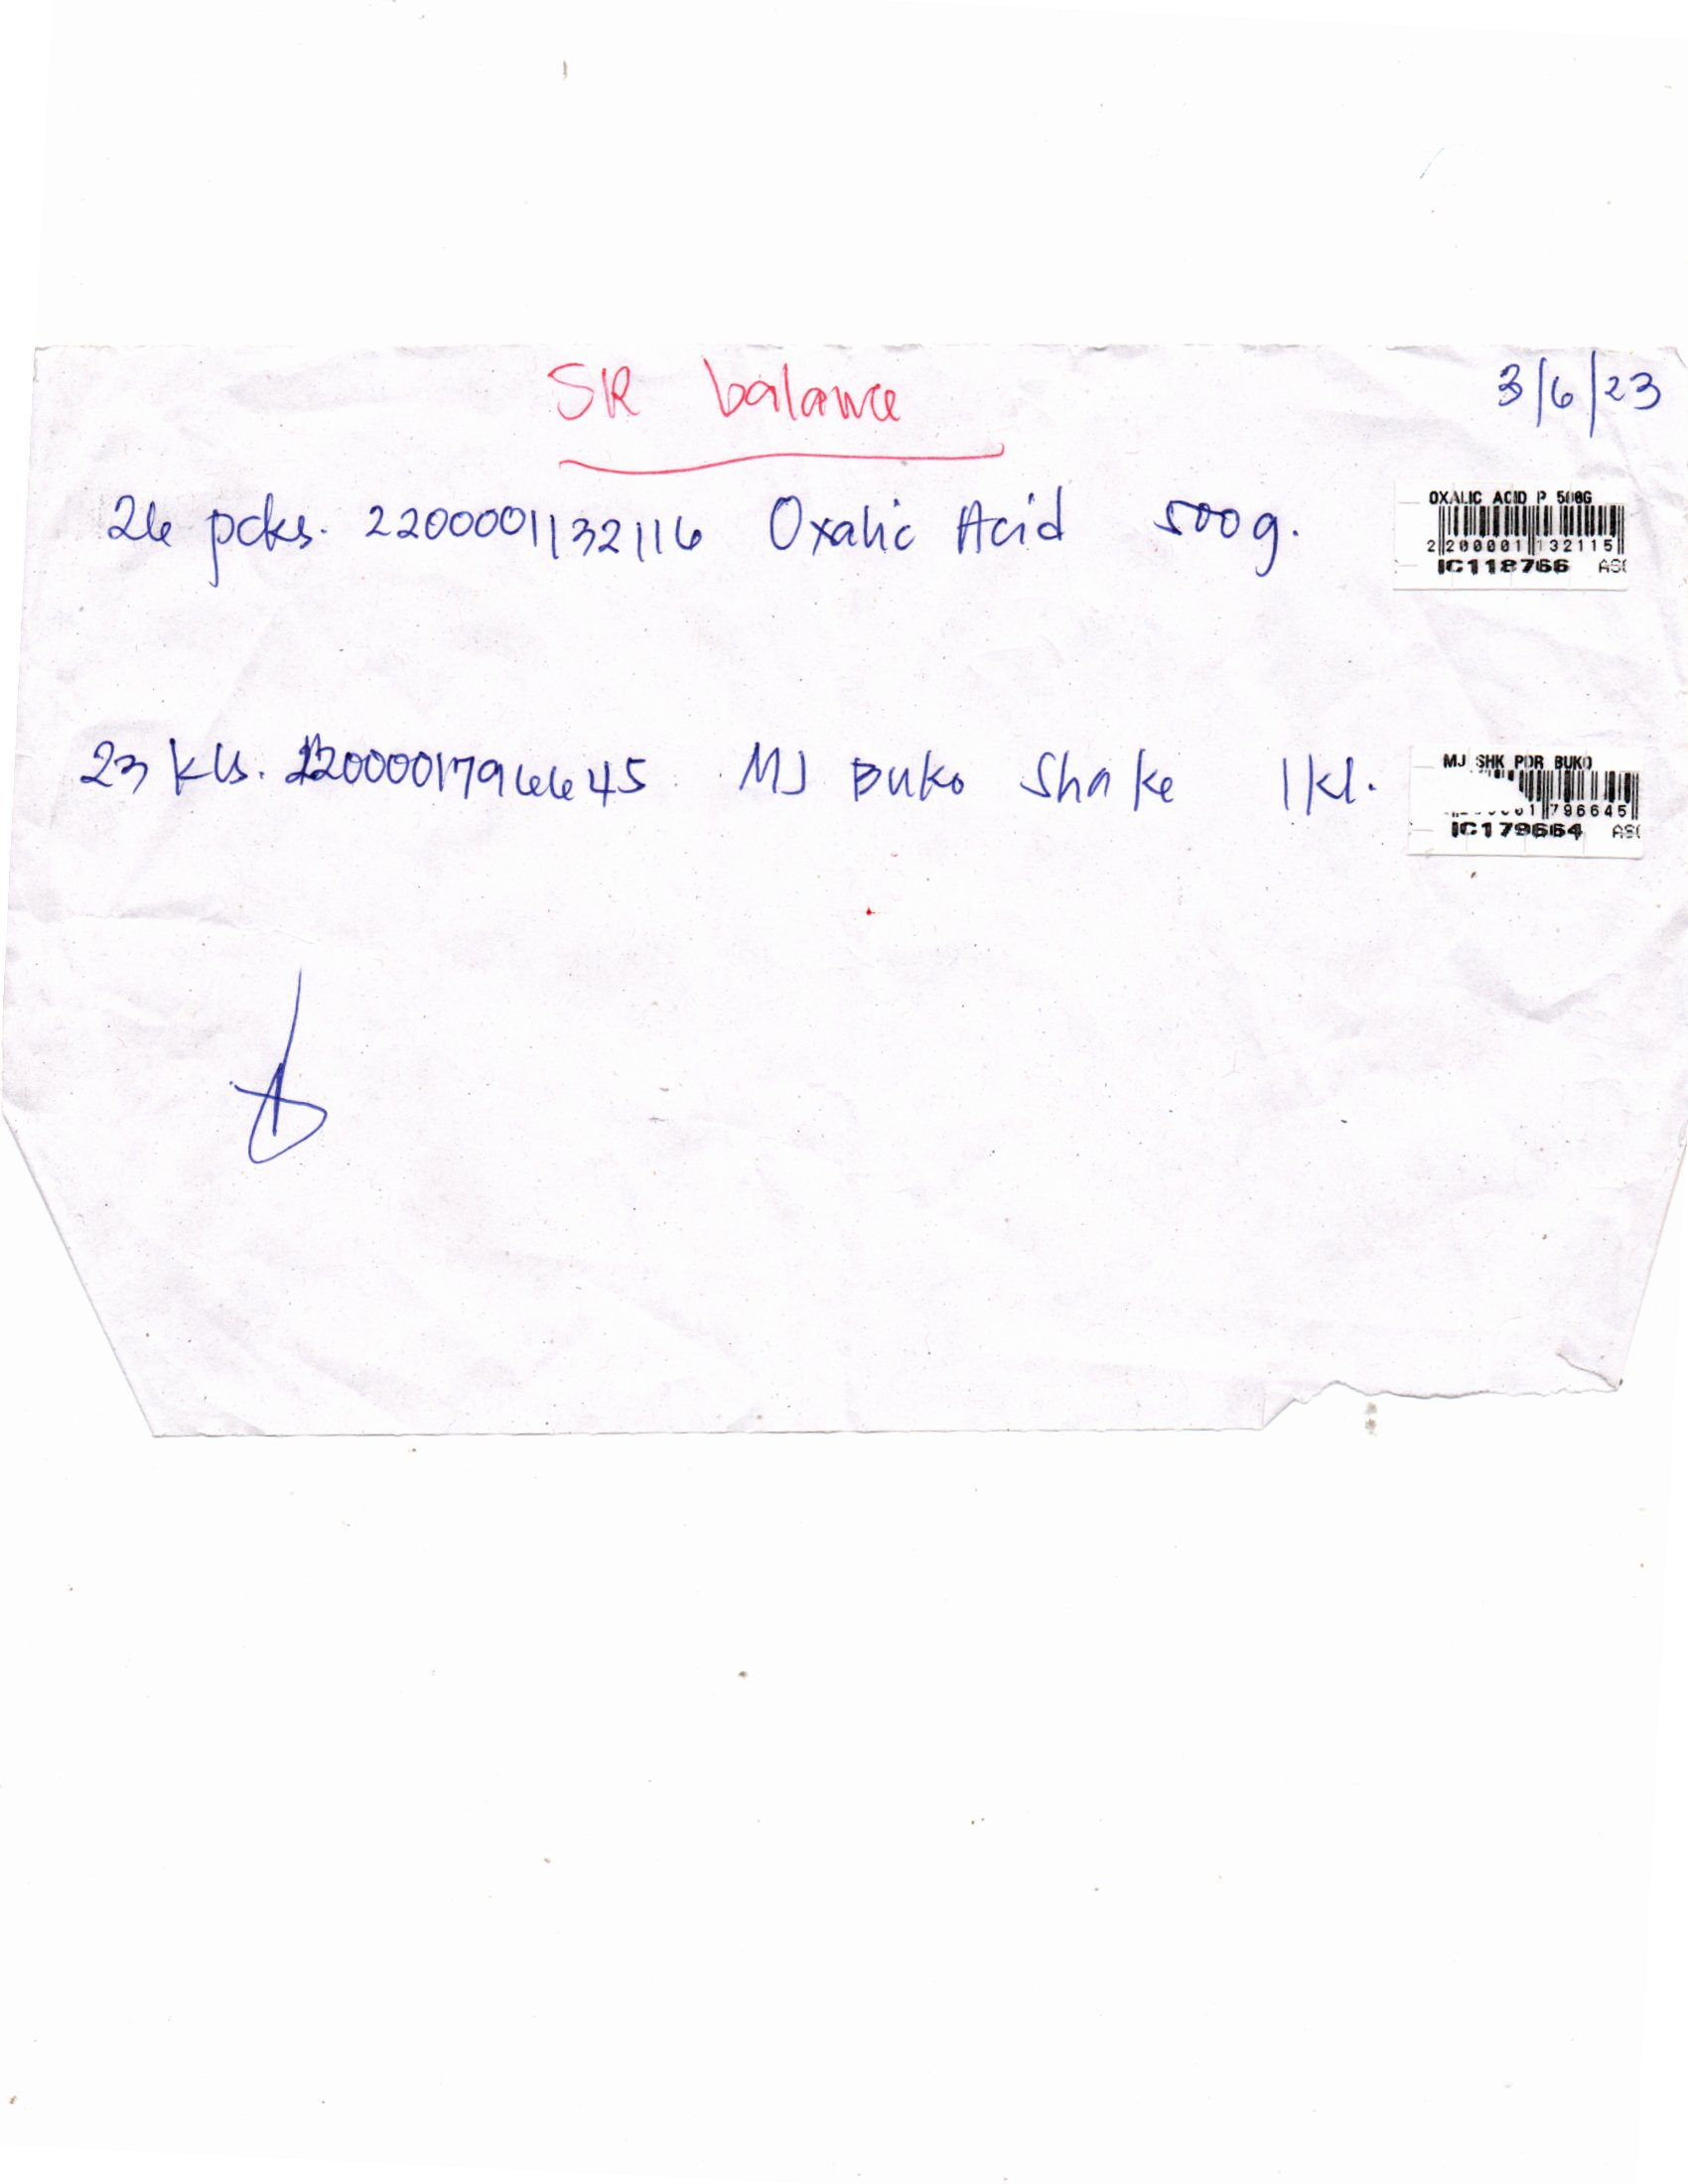 SR balance
3/6/23
26 pcks. 2200001132116 Oxalic Acid 500g.
OXALIC ACID P 500G
2 200001 132115
IC118766 AS
23 kls. 2200001796645 MJ Buko Shake 1kl.
MJ SHK PDR BUKO
1 796645
IC179664 AS